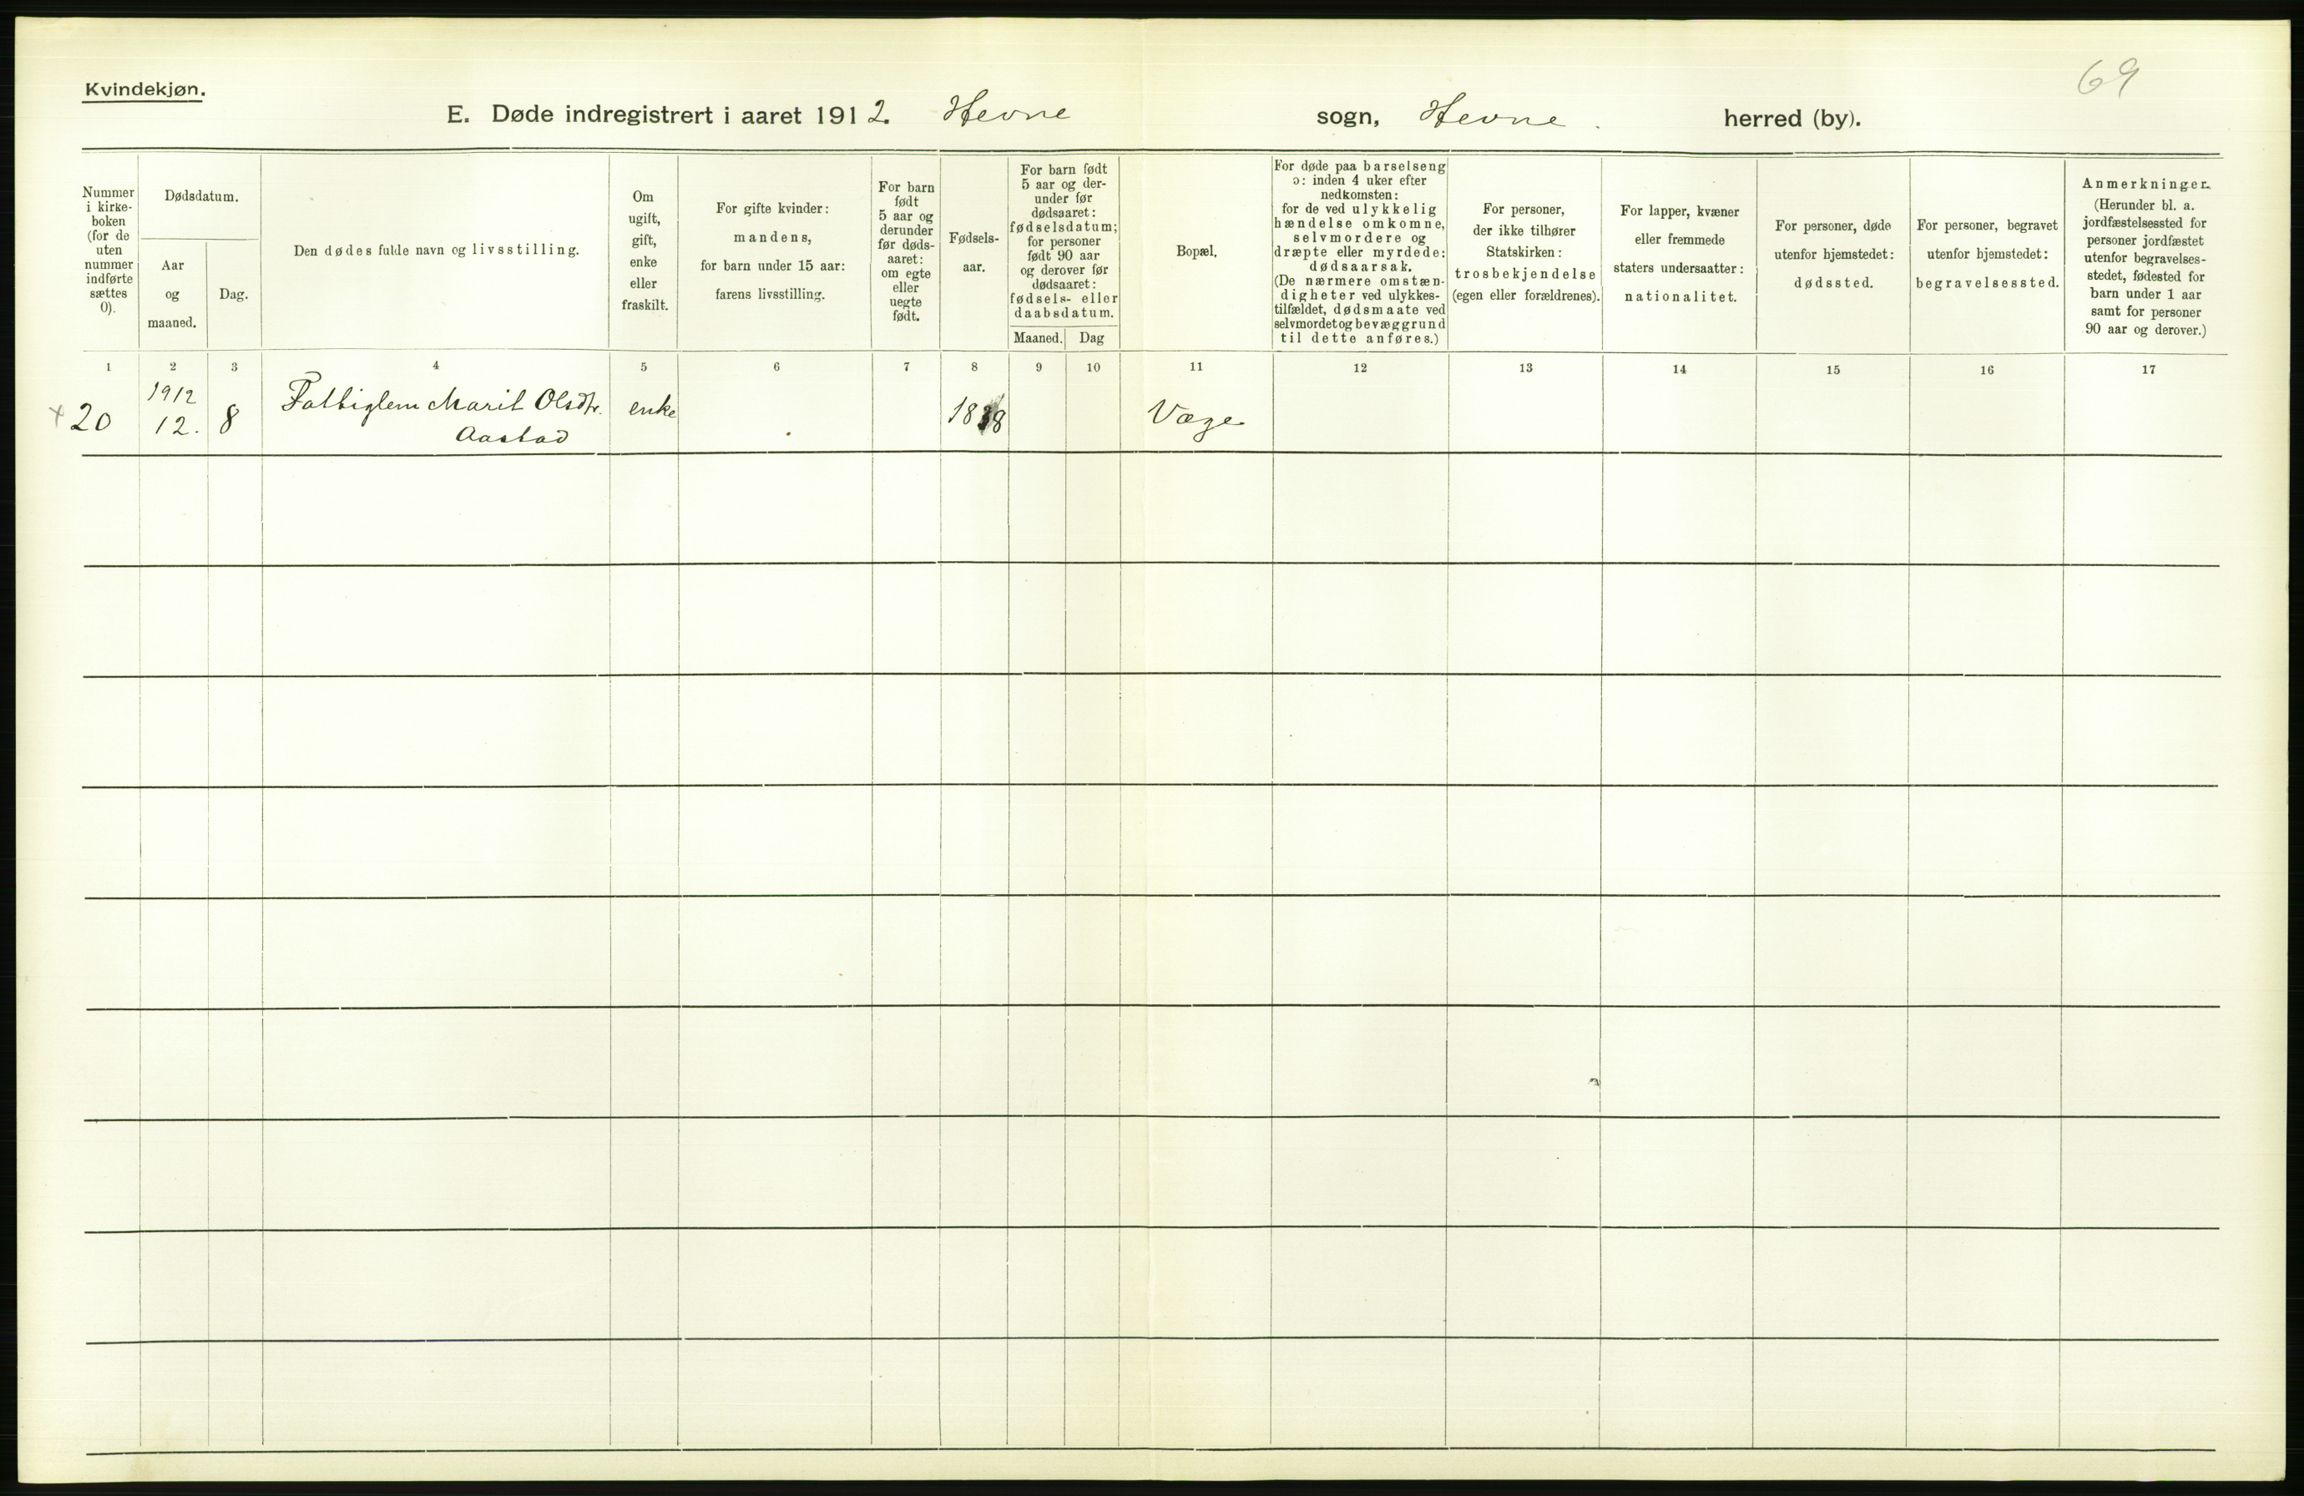 69
Kvindekjøn.
E. Døde indregistrert i aaret 1912. Hevne sogn, Hevne. herred (by).
Nummer
i kirke-
boken
(for de
uten
nummer
indførte
sættes
0).
Dødsdatum.
Aar
og
maaned.
Dag.
Den dødes fulde navn og livsstilling.
Om
ugift,
gift,
enke
eller
fraskilt.
For gifte kvinder:
mandens,
for barn under 15 aar:
farens livsstilling.
For barn
født
5 aar og
derunder
før døds-
aaret:
om egte
eller
uegte
født.
Fødsels-
aar.
For barn født
5 aar og der-
under før
dødsaaret:
fødselsdatum;
for personer
født 90 aar
og derover før
dødsaaret:
fødsels- eller
daabsdatum.
Maaned. Dag
Bopæl.
For døde paa barselseng
ɔ: inden 4 uker efter
nedkomsten:
for de ved ulykkelig
hændelse omkomne,
selvmordere og
dræpte eller myrdede:
dødsaarsak.
(De nærmere omstæn-
digheter ved ulykkes-
tilfældet, dødsmaate ved
selvmordet og bevæggrund
til dette anføres.)
For personer,
der ikke tilhører
Statskirken:
trosbekjendelse
(egen eller forældrenes).
For lapper, kvæner
eller fremmede
staters undersaatter:
nationalitet.
For personer, døde
utenfor hjemstedet:
dødssted.
For personer, begravet
utenfor hjemstedet:
begravelsessted.
Anmerkninger.
(Herunder bl. a.
jordfæstelsessted for
personer jordfæstet
utenfor begravelses-
stedet, fødested for
barn under 1 aar
samt for personer
90 aar og derover.)
1 2 3 4 5 6 7 8 9 10 11 12 13 14 15 16 17
1912
20 12. 8 Marit Olsdtr. enke 1838
Aastad